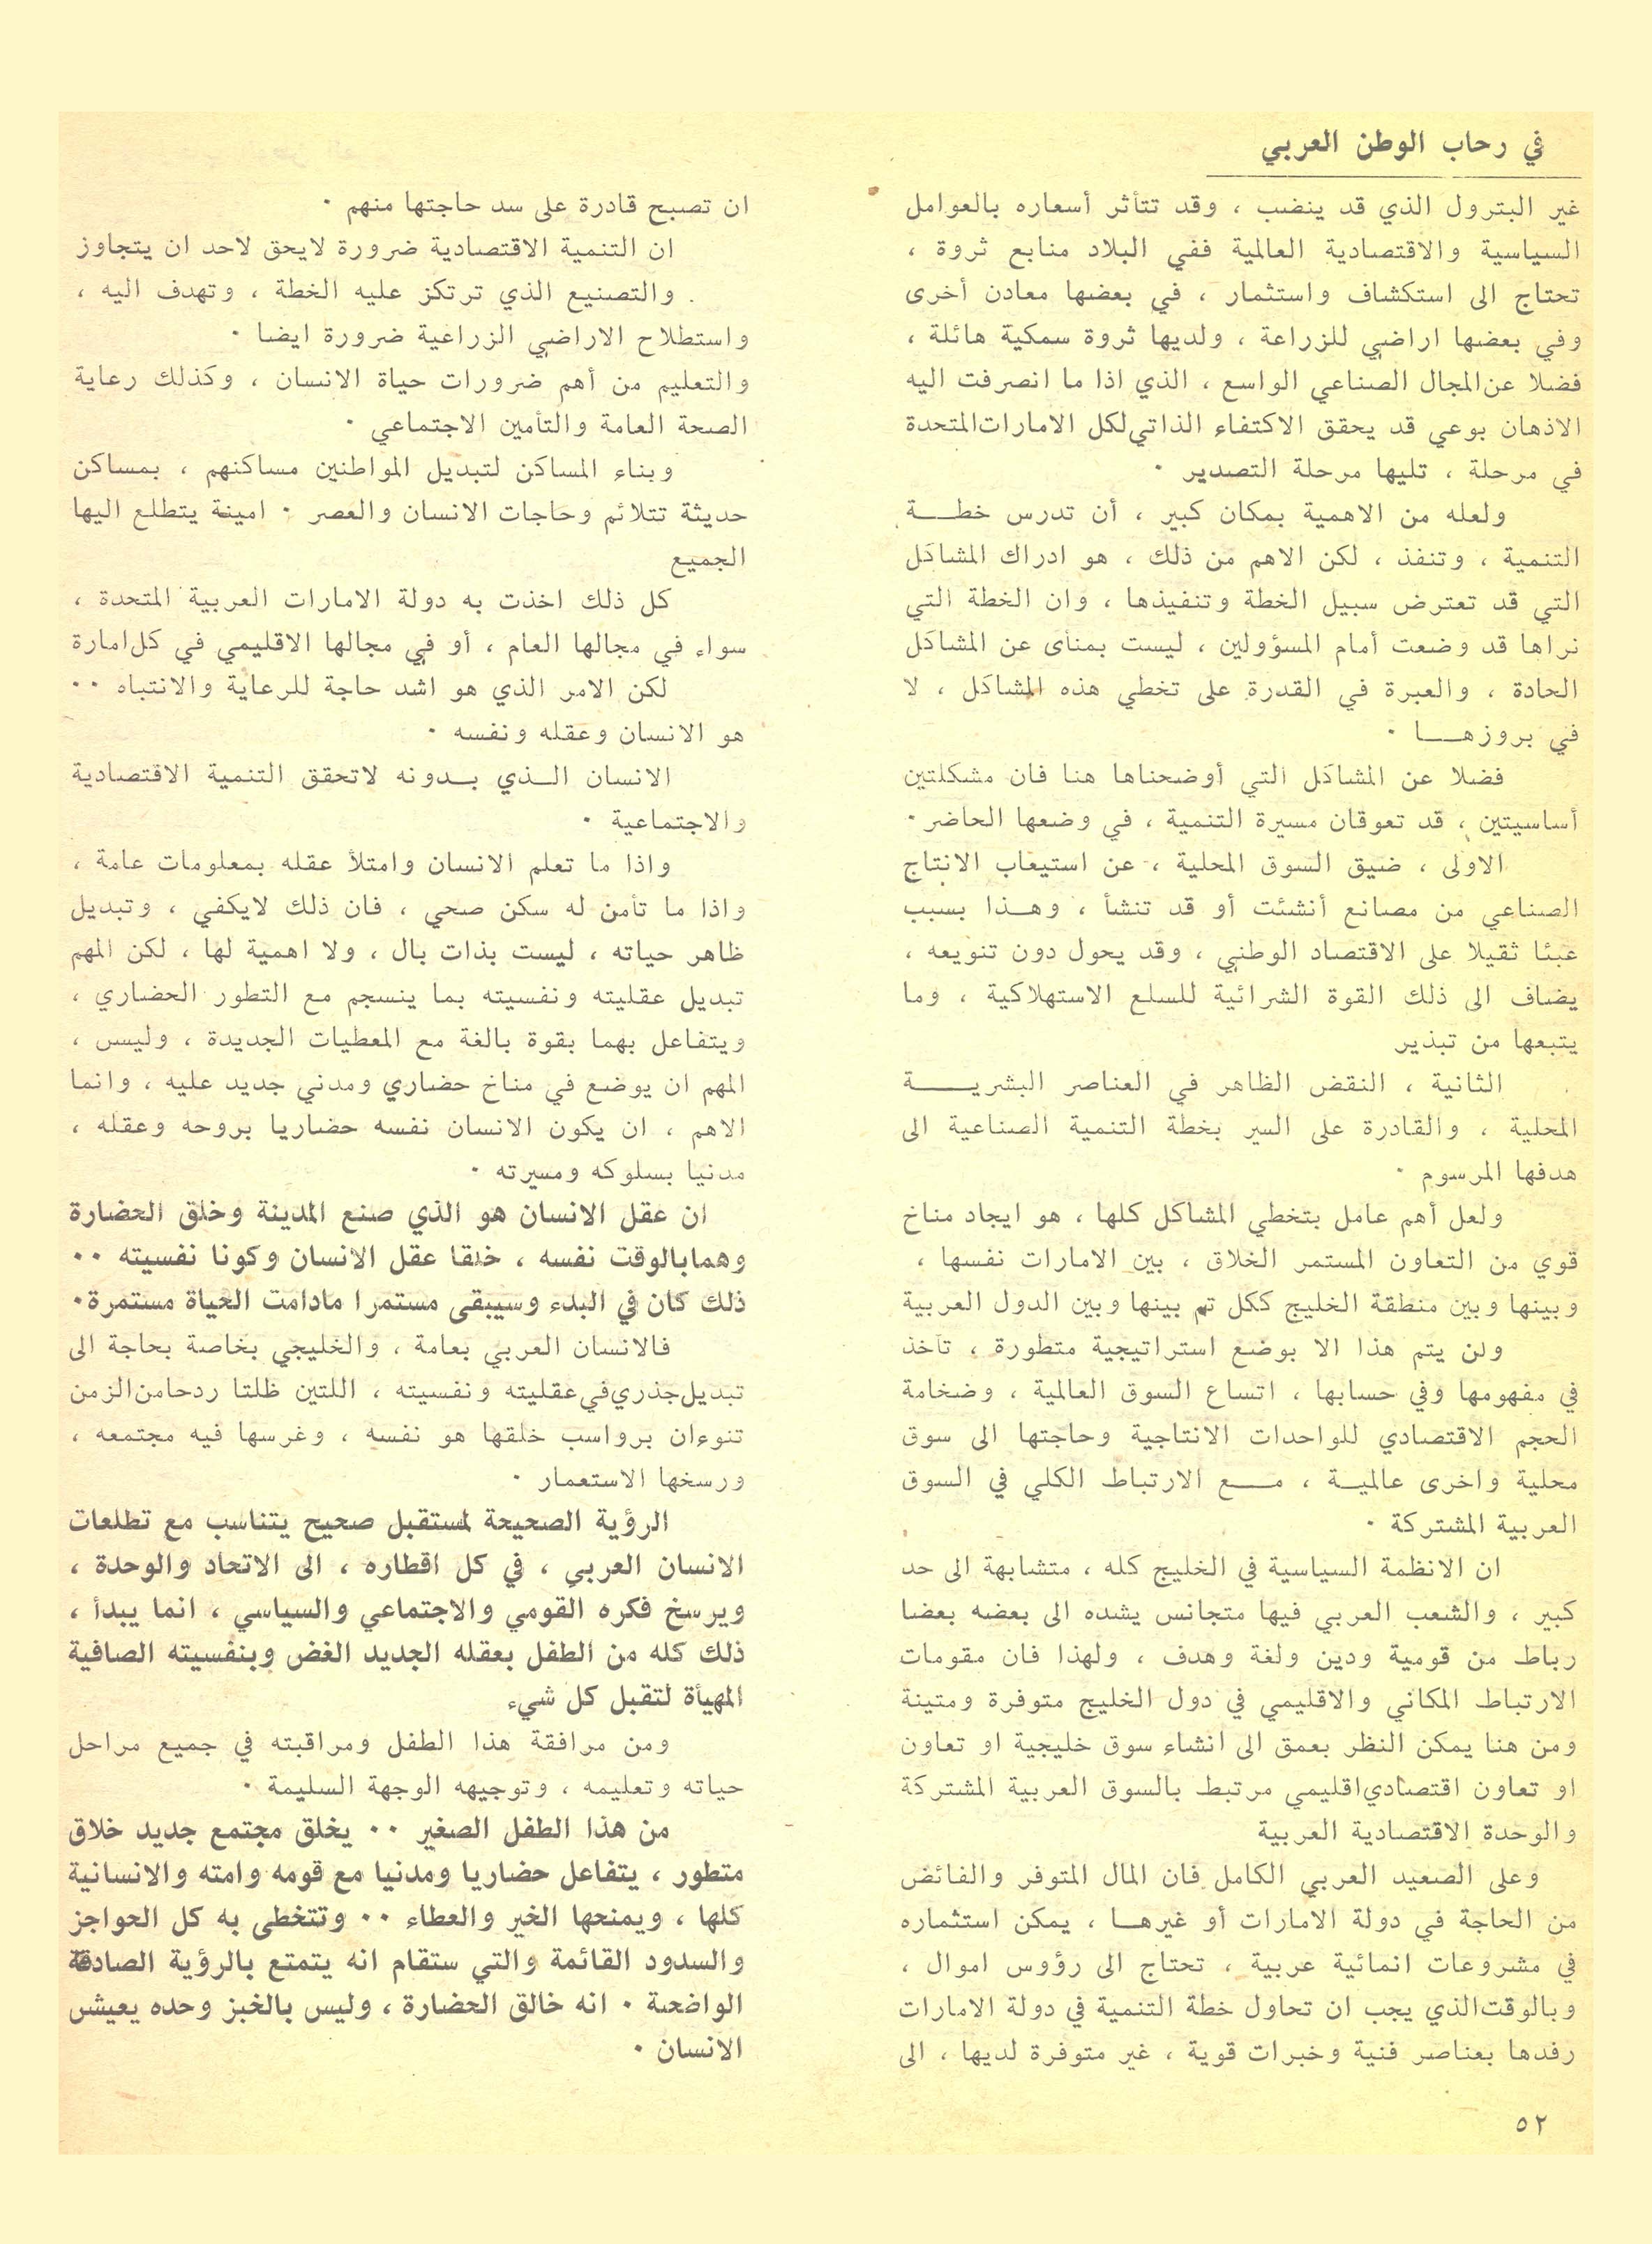 في رحاب الوطن العربي
غير البترول الذي قد ينضب ، وقد تتأثر أسعاره بالعوامل
السياسية والاقتصادية العالمية ففي البلاد منابع ثروة ،
تحتاج الى استكشاف واستثمار ، في بعضها معادن أخرى
وفي بعضها اراضي للزراعة ، ولديها ثروة سمكية هائلة ،
فضلا عن المجال الصناعي الواسع ، الذي اذا ما انصرفت اليه
الاذهان بوعي قد يحقق الاكتفاء الذاتي لكل الامارات المتحدة
في مرحلة ، تليها مرحلة التصدير .
ولعله من الاهمية بمكان كبير ، أن تدرس خطــة
التنمية ، وتنفذ ، لكن الاهم من ذلك ، هو ادراك المشاكل
التي قد تعترض سبيل الخطة وتنفيذها ، وان الخطة التي
نراها قد وضعت أمام المسؤولين ، ليست بمنأى عن المشاكل
الحادة ، والعبرة في القدرة على تخطي هذه المشاكل ، لا
في بروزهــا .
فضلا عن المشاكل التي أوضحناها هنا فان مشكلتين
أساسيتين ، قد تعوقان مسيرة التنمية ، في وضعها الحاضر .
الاولى ، ضيق السوق المحلية ، عن استيعاب الانتاج
الصناعي من مصانع أنشئت أو قد تنشأ ، وهــذا بسبب
عبئا ثقيلا على الاقتصاد الوطني ، وقد يحول دون تنويعه ،
يضاف الى ذلك القوة الشرائية للسلع الاستهلاكية ، وما
يتبعها من تبذير
الثانية ، النقض الظاهر في العناصر البشريــة
المحلية ، والقادرة على السير بخطة التنمية الصناعية الى
هدفها المرسوم .
ولعل أهم عامل بتخطي المشاكل كلها ، هو ايجاد مناخ
قوي من التعاون المستمر الخلاق ، بين الامارات نفسها ،
وبينها وبين منطقة الخليج ككل تم بينها وبين الدول العربية
ولن يتم هذا الا بوضع استراتيجية متطورة ، تأخذ
في مفهومها وفي حسابها ، اتساع السوق العالمية ، وضخامة
الحجم الاقتصادي للواحدات الانتاجية وحاجتها الى سوق
محلية واخرى عالميــة ، مــع الارتباط الكلي في السوق
العربية المشتركة .
ان الانظمة السياسية في الخليج كله ، متشابهة الى حد
كبير ، والشعب العربي فيها متجانس يشده الى بعضه بعضا
رباط من قومية ودين ولغة وهدف ، ولهذا فان مقومات
الارتباط المكاني والاقليمي في دول الخليج متوفرة ومتينة
ومن هنا يمكن النظر بعمق الى انشاء سوق خليجية او تعاون
او تعاون اقتصادي اقليمي مرتبط بالسوق العربية المشتركة
والوحدة الاقتصادية العربية
وعلى الصعيد العربي الكامل فان المال المتوفر والفائض
من الحاجة في دولة الامارات أو غيرهــا ، يمكن استثماره
في مشروعات انمائية عربية ، تحتاج الى رؤوس اموال ،
وبالوقت الذي يجب ان تحاول خطة التنمية في دولة الامارات
رفدها بعناصر فنية وخبرات قوية ، غير متوفرة لديها ، الى
ان تصبح قادرة على سد حاجتها منهم .
ان التنمية الاقتصادية ضرورة لايحق لاحد ان يتجاوز
. والتصنيع الذي ترتكز عليه الخطة ، وتهدف اليه ،
واستطلاح الاراضي الزراعية ضرورة ايضا .
والتعليم من أهم ضرورات حياة الانسان ، وكذلك رعاية
الصحة العامة والتأمين الاجتماعي .
وبناء المساكن لتبديل المواطنين مساكنهم ، بمساكن
حديثة تتلائم وحاجات الانسان والعصر . امينة يتطلع اليها
الجميع
كل ذلك اخذت به دولة الامارات العربية المتحدة ،
سواء في مجالها العام ، أو في مجالها الاقليمي في كل امارة
لكن الامر الذي هو اشد حاجة للرعاية والانتباه ..
هو الانسان وعقله ونفسه .
الانسان الــذي بــدونه لاتحقق التنمية الاقتصادية
والاجتماعية .
واذا ما تعلم الانسان وامتلأ عقله بمعلومات عامة ،
واذا ما تأمن له سكن صحي ، فان ذلك لايكفي ، وتبديل
ظاهر حياته ، ليست بذات بال ، ولا اهمية لها ، لكن المهم
تبديل عقليته ونفسيته بما ينسجم مع التطور الحضاري ،
ويتفاعل بهما بقوة بالغة مع المعطيات الجديدة ، وليس ،
المهم ان يوضع في مناخ حضاري ومدني جديد عليه ، وانما
الاهم ، ان يكون الانسان نفسه حضاريا بروحه وعقله ،
مدنيا بسلوكه ومسيرته .
ان عقل الانسان هو الذي صنع المدينة وخلق الحضارة
وهما بالوقت نفسه ، خلقا عقل الانسان وكونا نفسيته ..
ذلك كان في البدء وسيبقى مستمرا مادامت الحياة مستمرة .
فالانسان العربي بعامة ، والخليجي بخاصة بحاجة الى
تبديل جذري في عقليته ونفسيته ، اللتين ظلتا ردحا من الزمن
تنوءان برواسب خلقها هو نفسه ، وغرسها فيه مجتمعه ،
ورسخها الاستعمار .
الرؤية الصحيحة لمستقبل صحيح يتناسب مع تطلعات
الانسان العربي ، في كل اقطاره ، الى الاتحاد والوحدة ،
ويرسخ فكره القومي والاجتماعي والسياسي ، انما يبدأ ،
ذلك كله من الطفل بعقله الجديد الغض وبنفسيته الصافية
المهيأة لتقبل كل شيء
ومن مرافقة هذا الطفل ومراقبته في جميع مراحل
حياته وتعليمه ، وتوجيهه الوجهة السليمة .
من هذا الطفل الصغير .. يخلق مجتمع جديد خلاق
متطور ، يتفاعل حضاريا ومدنيا مع قومه وامته والانسانية
كلها ، ويمنحها الخير والعطاء .. وتتخطى به كل الحواجز
والسدود القائمة والتي ستقام انه يتمتع بالرؤية الصادقة
الواضحة . انه خالق الحضارة ، وليس بالخبز وحده يعيش
الانسان .
٥٢